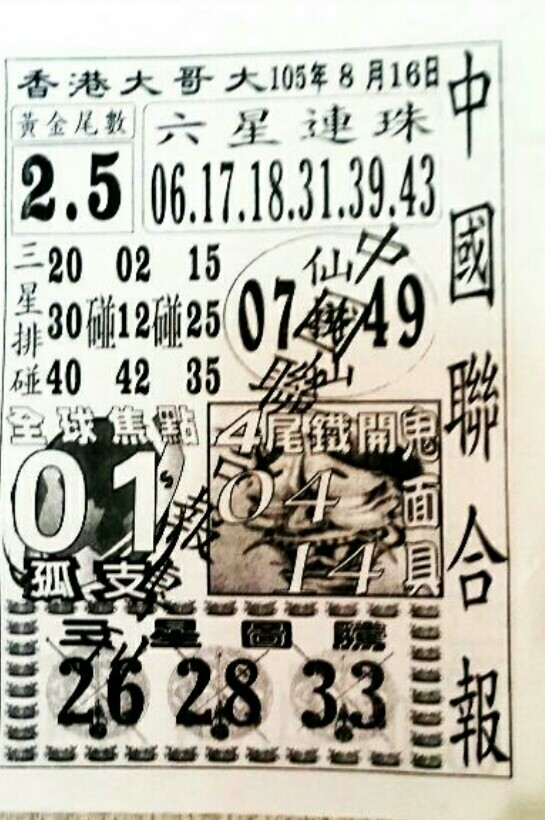 香港大哥大105年8月16日
中國聯合報
黃金尾數
2.5
六星連珠
06.17.18.31.39.43
三星排碰
20 02 15
30碰12碰25
40 42 35
仙
07 49
仙
全球焦點
01
孤支
4尾鐵開鬼面具
04
14
三星
26 28 33